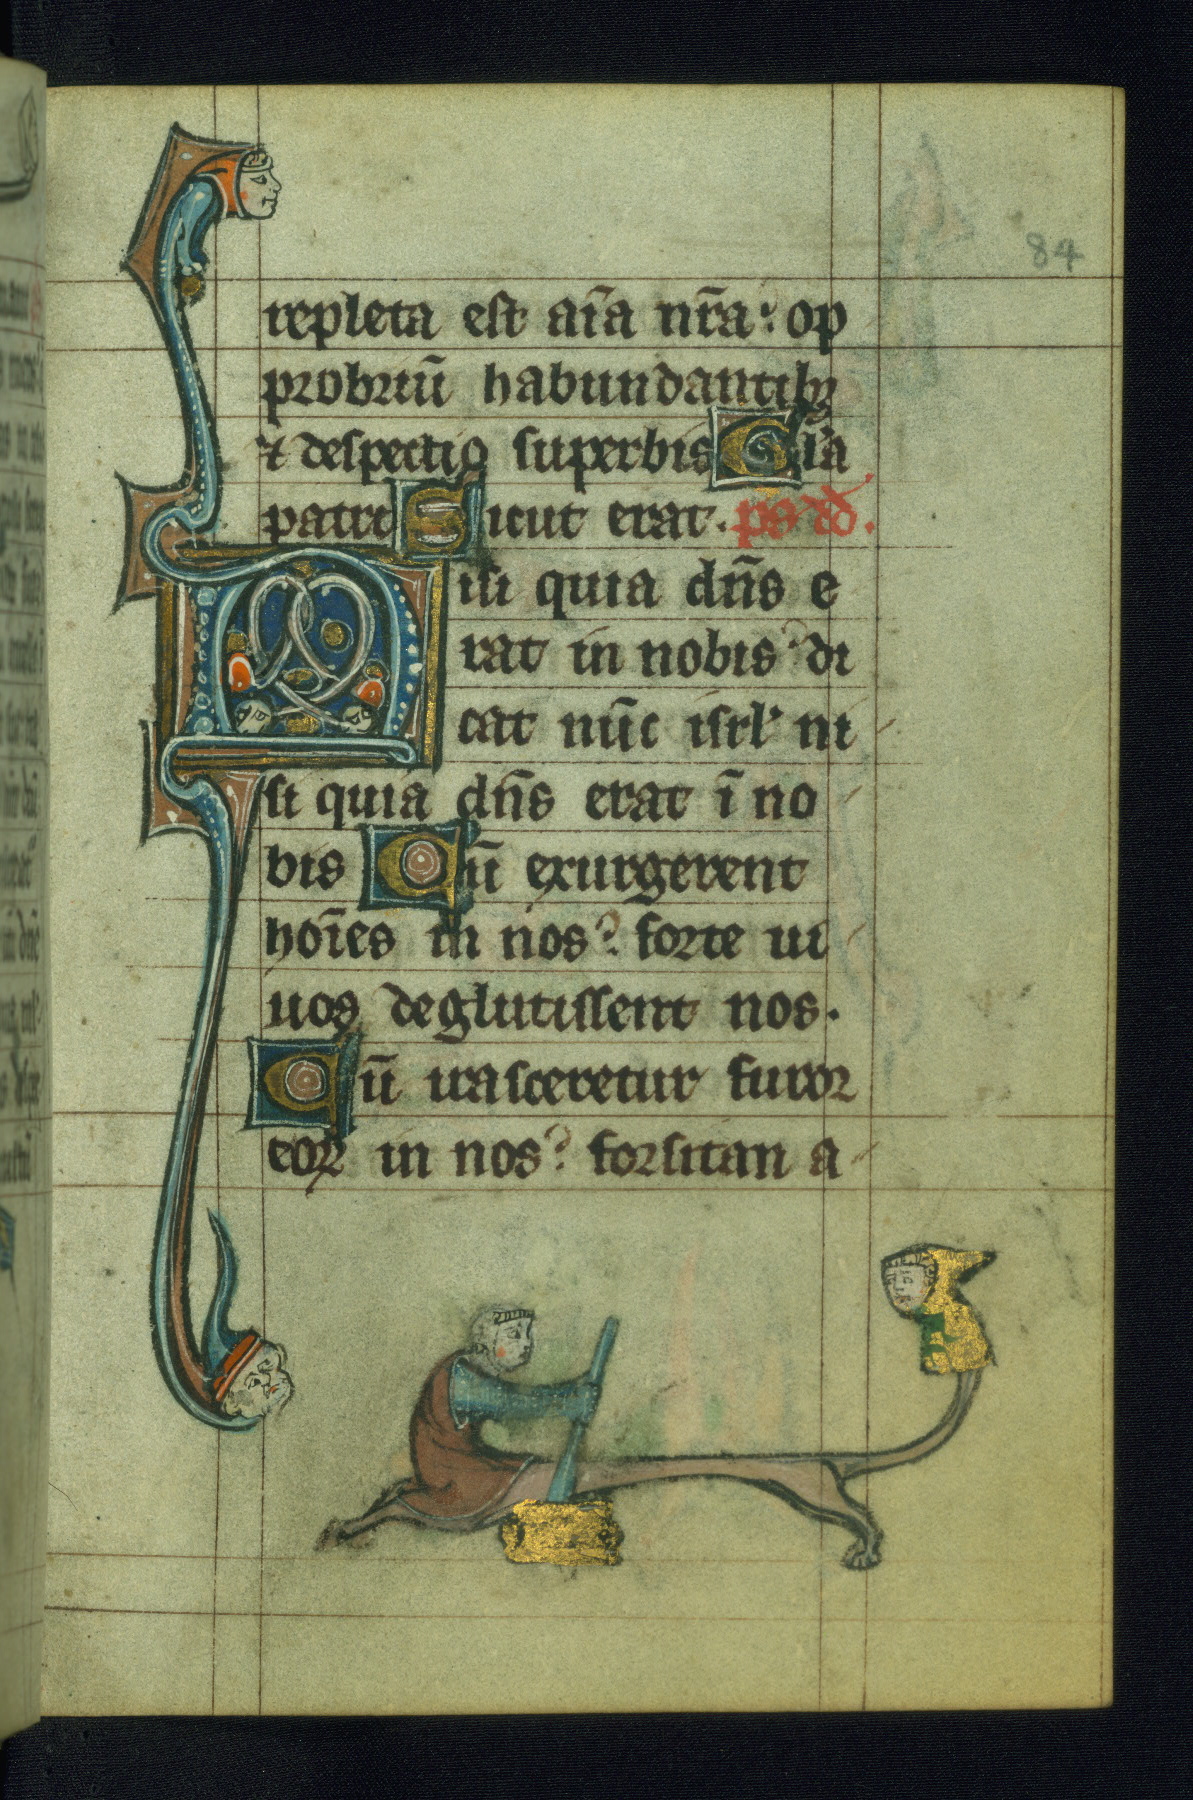 84
repleta est aı̄a nr̄a: op
probriū habundantibꝫ
⁊ despectio superbis Gl'a
patri Sicut erat. ps dd̄.
Nisi quia dn̄s e
rat in nobis: di
cat nūc isrl' ni
si quia dn̄s erat ī no
bis Cū exurgerent
hoı̄es in nos: forte ui
uos deglutissent nos.
Cū irasceretur furor
eoꝝ in nos: forsitan a